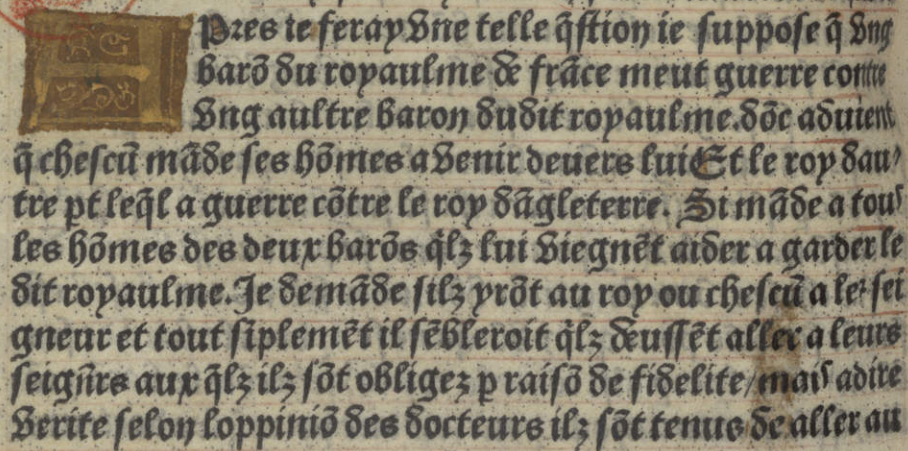 APres ie feray vne telle q̃stion ie suppose q̃ vng
barõ du royaulme de frãce meut guerre contre
vng aultre baron dudit royaulme.dõc aduient
q̃ chescũ mãde ses hõmes a venir deuers lui Et le roy dau
tre pt leq̃l a guerre cõtre le roy dãgleterre. Si mãde a tous
les hõmes des deux barõs q̃lz lui viegnẽt aider a garder le
dit royaulme. Je demãde silz yrõt au roy ou chescũ a leᷣ sei
gneur et tout siplemẽt il sẽbleroit q̃lz deussẽt aller a leurs
seigñrs aux q̃lz ilz sõt obligez ꝑ raisõ de fidelite/ mais adire
verite selon loppiniõ des docteurs ilz sõt tenus de aller au